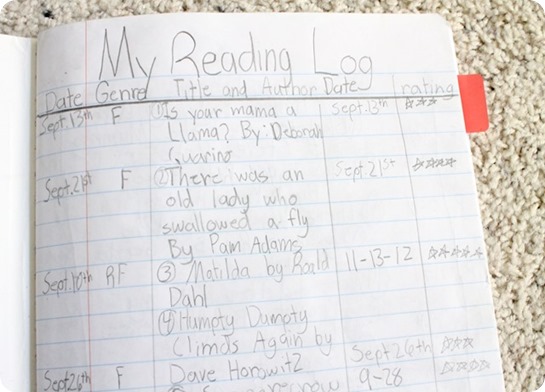 My Reading Log
Date Genre Title and Author Date rating
Sept.13th F ①Is your mama a Sept.13th ☆☆☆
Llama? By: Deborah
Guarino
Sept.21st F ②There was an Sept.21st ☆☆☆☆
old lady who
swallowed a fly
By Pam Adams
Sept.10th RF ③ Matilda by Roald 11-13-12 ☆☆☆☆☆
Dahl
④Humpty Dumpty
Climbs Again by Sept26th ☆☆☆
Sept26th F Dave Horowitz 9-28 ☆☆☆☆